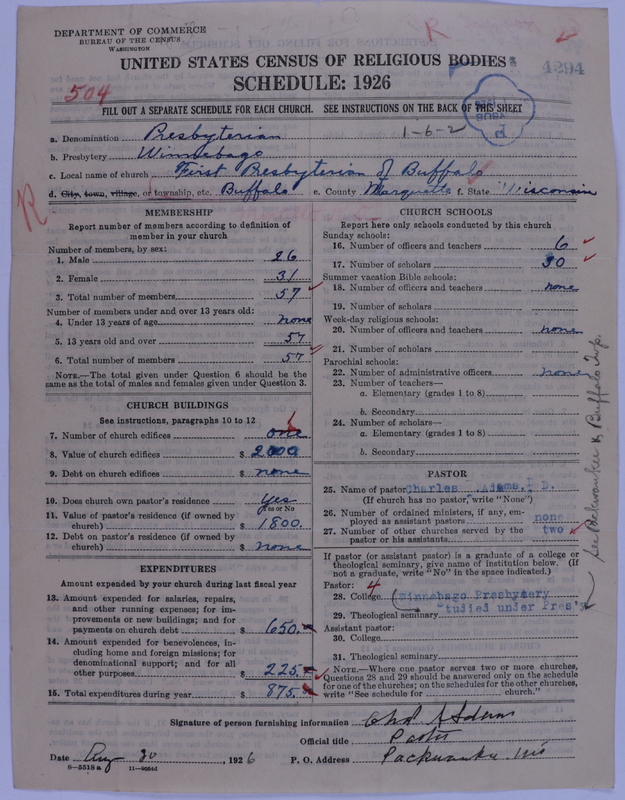 DEPARTMENT OF COMMERCE
BUREAU OF THE CENSUS
WASHINGTON
UNITED STATES CENSUS OF RELIGIOUS BODIES
SCHEDULE: 1926
4294
504
R
FILL OUT A SEPARATE SCHEDULE FOR EACH CHURCH. SEE INSTRUCTIONS ON THE BACK OF THIS SHEET
1-6-2
a. Denomination Presbyterian
b. Presbytery Winnebago
c. Local name of church First Presbyterian of Buffalo
d. City, town, village, or township, etc. Buffalo e. County Marquette f. State Wisconsin
R
MEMBERSHIP
Report number of members according to definition of member in your church
Number of members, by sex:
1. Male 26
2. Female 31
3. Total number of members 57
Number of members under and over 13 years old:
4. Under 13 years of age none
5. 13 years old and over 57
6. Total number of members 57
NOTE.—The total given under Question 6 should be the
same as the total of males and females given under Question 3.
CHURCH BUILDINGS
See instructions, paragraphs 10 to 12
7. Number of church edifices one
8. Value of church edifices $ 2000
9. Debt on church edifices $ none
10. Does church own pastor's residence? Yes
Yes or No
11. Value of pastor's residence (if owned by
church) $ 1800.
12. Debt on pastor's residence (if owned by
church) $ none
EXPENDITURES
Amount expended by your church during last fiscal year
13. Amount expended for salaries, repairs,
and other running expenses; for im-
provements or new buildings; and for
payments on church debt $ 650.
14. Amount expended for benevolences, in-
cluding home and foreign missions; for
denominational support; and for all
other purposes $ 225
15. Total expenditures during year $ 875
CHURCH SCHOOLS
Report here only schools conducted by this church
Sunday schools:
16. Number of officers and teachers 6
17. Number of scholars 30
Summer vacation Bible schools:
18. Number of officers and teachers none
19. Number of scholars
Week-day religious schools:
20. Number of officers and teachers none
21. Number of scholars
Parochial schools:
22. Number of administrative officers none
23. Number of teachers—
a. Elementary (grades 1 to 8)
b. Secondary
24. Number of scholars—
a. Elementary (grades 1 to 8)
b. Secondary
PASTOR
25. Name of pastor Charles Adams, D.
(If church has no pastor, write "None")
26. Number of ordained ministers, if any, em-
ployed as assistant pastors none
27. Number of other churches served by the
pastor or his assistants two
If pastor (or assistant pastor) is a graduate of a college or
theological seminary, give name of institution below. (If
not a graduate, write "No" in the space indicated.)
Pastor: 4
28. College Winnebago Presbytery
29. Theological seminary "tudied under Pres'
Assistant pastor:
30. College
31. Theological seminary
NOTE.—Where one pastor serves two or more churches,
Questions 28 and 29 should be answered only on the schedule
for one of the churches; on the schedules for the other churches,
write "See schedule for church."
See Packwaukee & Buffalo Twp.
Signature of person furnishing information Chas Adams
Official title Pastor
Date Aug 30, 1926 P. O. Address Packwaukee Wis
8—5518 a 11—9054d